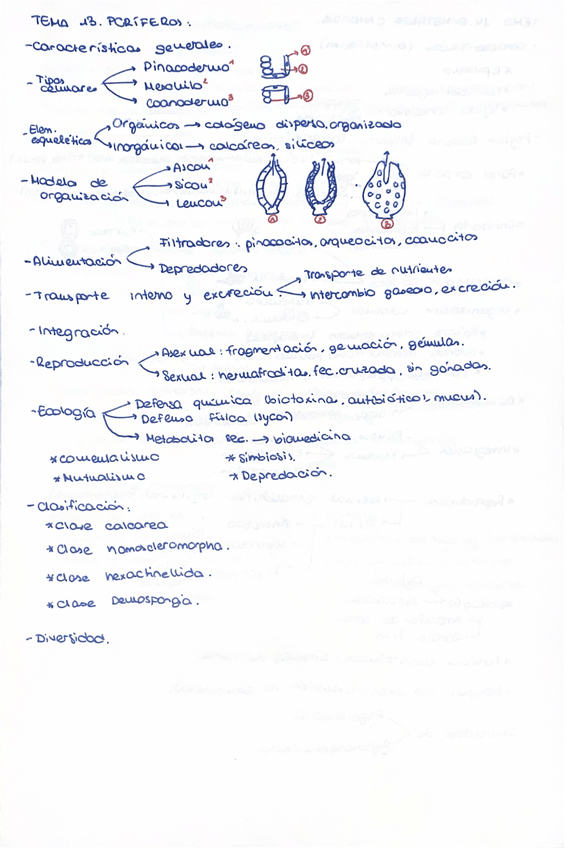 TEMA 13. PORÍFEROS:
-Características generales.
-Tipos celulares
Pinacodermo¹
Mesohilo²
Coanodermo³
1
2
3
-Elem. esqueléticos
Orgánicos → colágeno disperso, organizado
Inorgánicos → calcáreos, silíceos
-Modelo de organización
Ascon¹
Sicon²
Leucon³
1
2
3
-Alimentación
Filtradores: pinacocitos, arqueocitos, coanocitos
Depredadores
-Transporte interno y excreción:
Transporte de nutrientes
Intercambio gaseoso, excreción.
-Integración.
-Reproducción
Asexual: fragmentación, gemación, gémulas.
Sexual: hermafroditas, fec. cruzada, sin gónadas.
-Ecología
Defensa química (biotoxina, antibióticos, mucus).
Defensa física (sycon)
Metabolito sec. → biomedicina
*Comensalismo
*Simbiosis.
*Mutualismo
*Depredación.
-Clasificación:
*Clase calcarea
*Clase homoscleromorpha.
*Clase hexactinellida.
*Clase Demospongia.
-Diversidad.